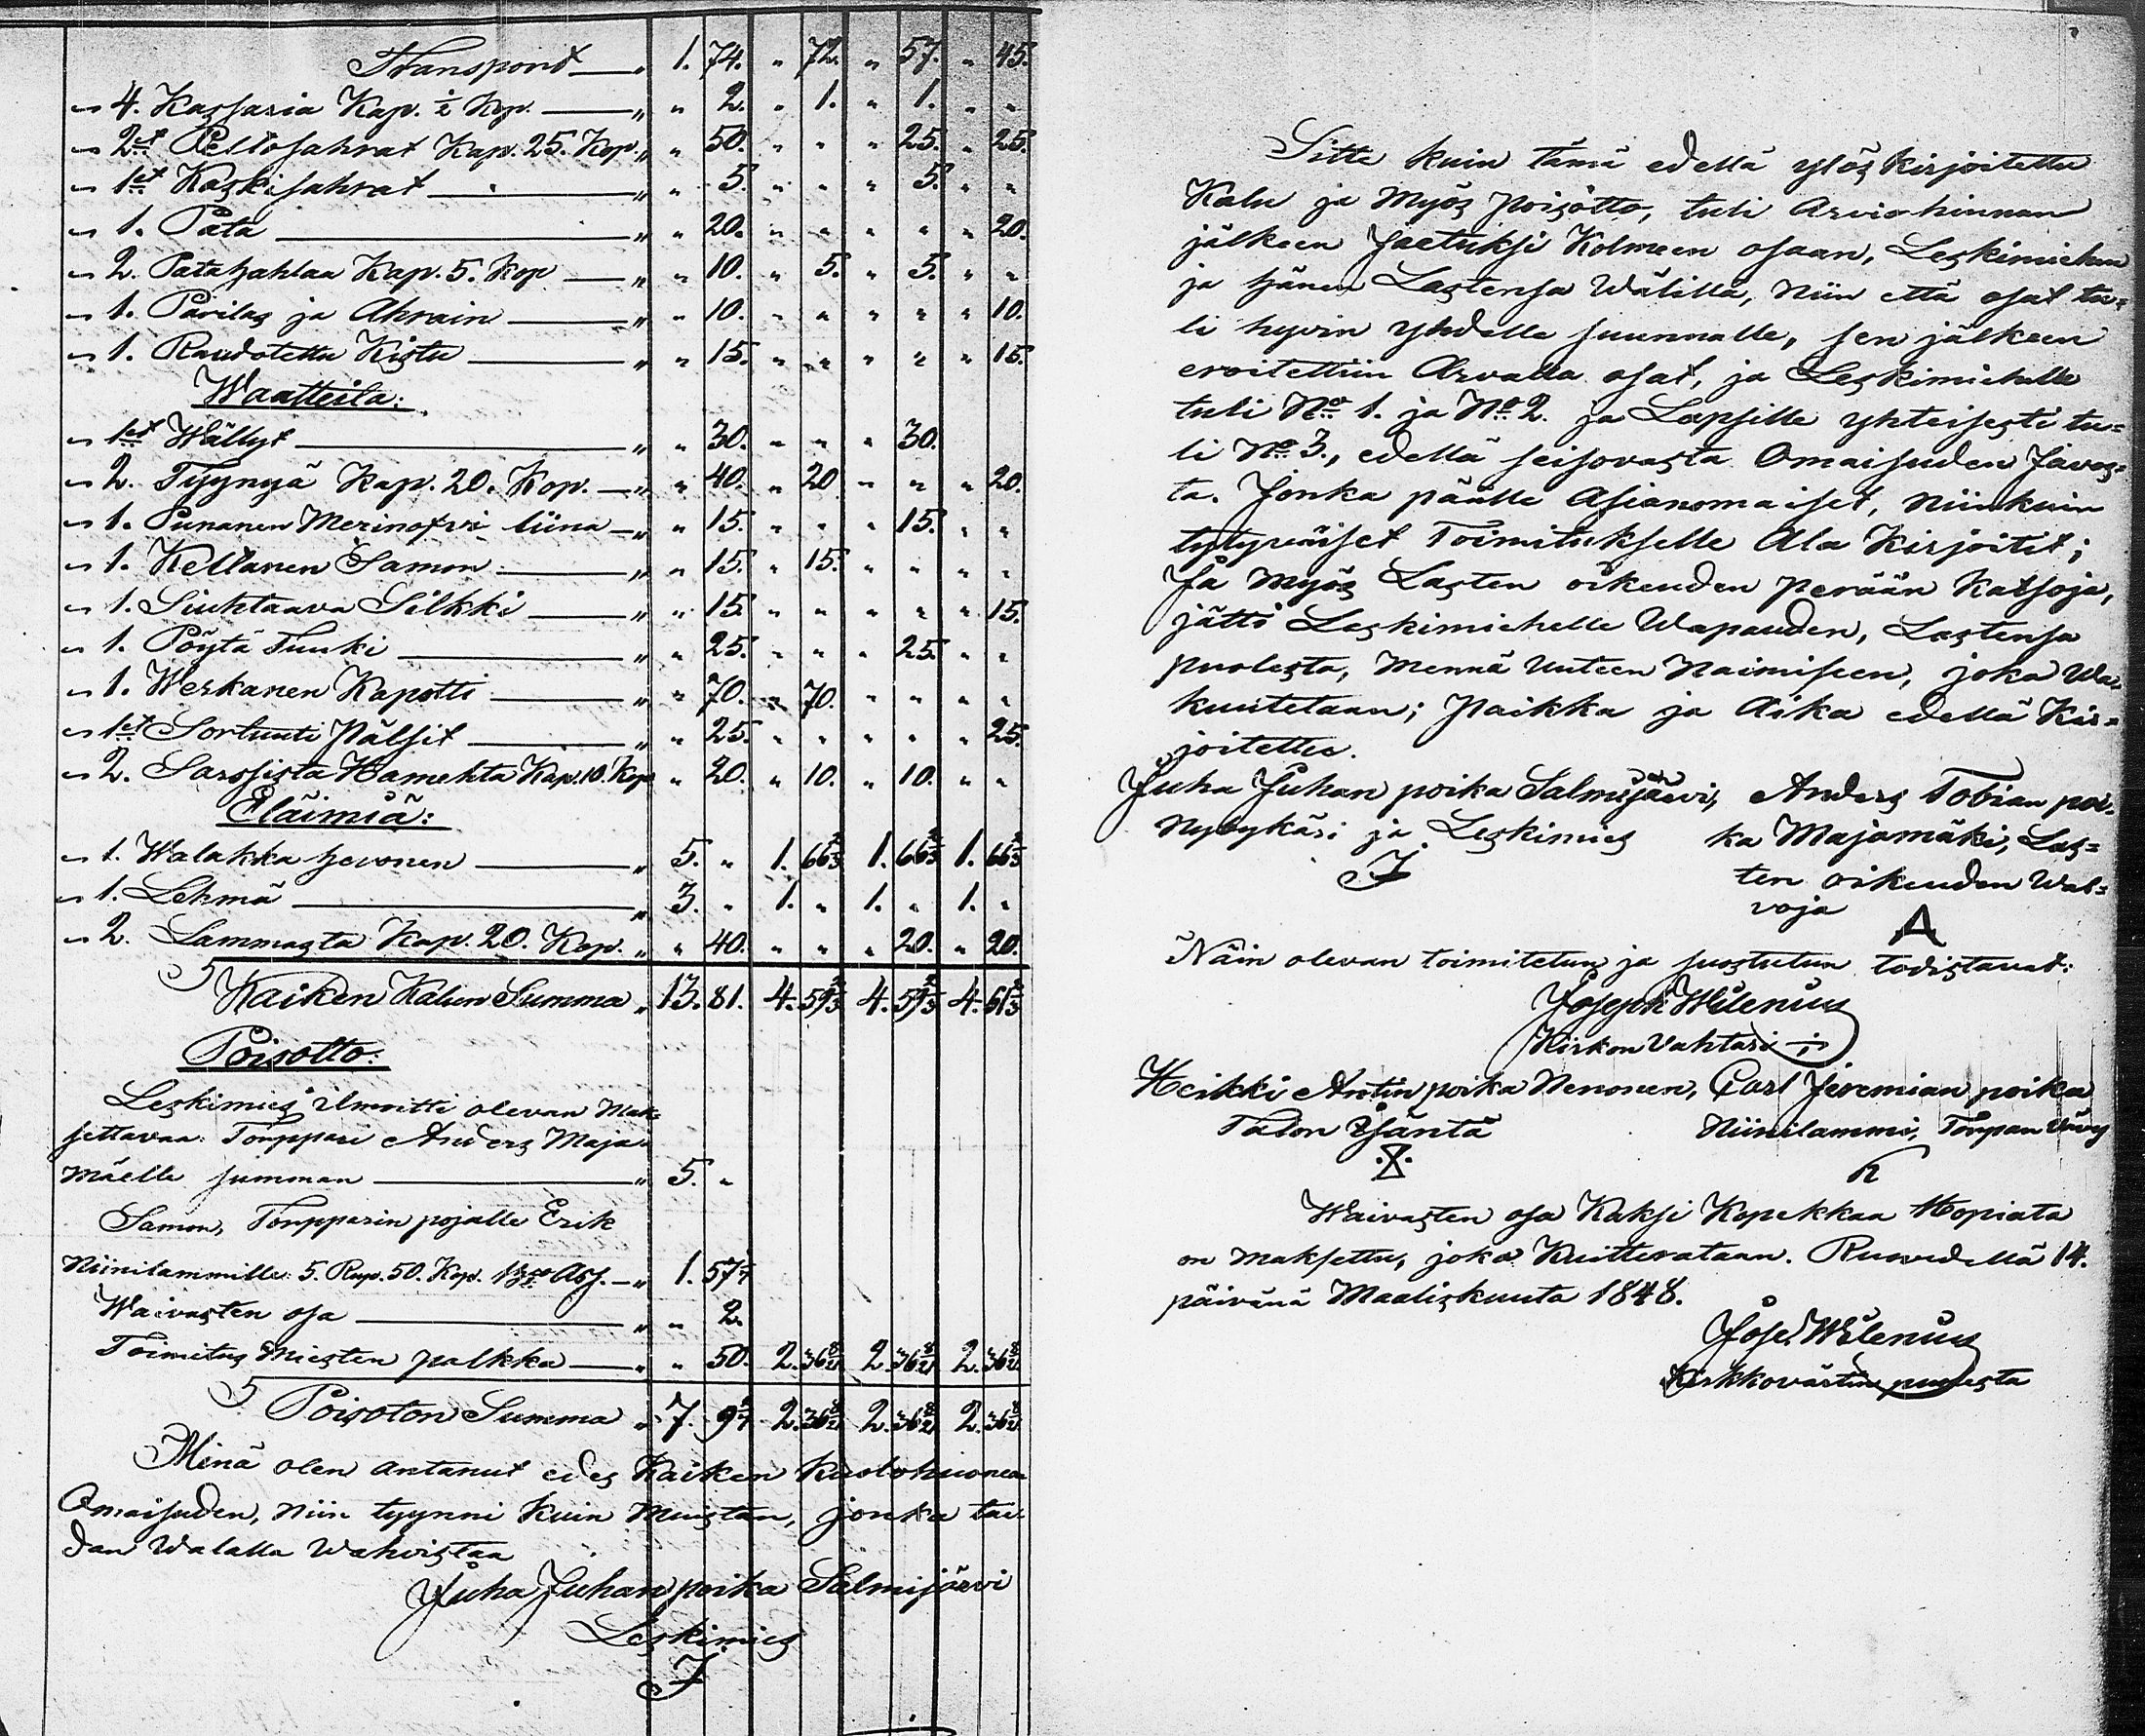 Transport — „ 1. 74. „ 72. „ 57. „ 45.
„ 4. Kassaria Kap. ½ Kop. — „ „ 2. „ 1. „ 1. „ „
„ 2et Peltosahrat Kap. 25. Kop. „ „ 50. „ „ „ 25. „ 25.
„ 1et Kaskisahrat — „ „ 5. „ „ „ 5. „ „
„ 1. Pata — „ „ 20. „ „ „ „ „ 20.
„ 2. Patahahlaa Kap. 5. Kop — „ „ 10. „ 5. „ 5. „ „
„ 1. Parilas ja Ahrain — „ „ 10. „ „ „ „ „ 10.
„ 1. Raudotettu Kistu — „ „ 15. „ „ „ „ „ 15.
Waatteita:
„ 1et Wällyt — „ „ 30. „ „ „ 30.
„ 2. Tyynyä Kap. 20. Kop. — „ „ 40. „ 20 „ „ „ 20.
„ 1. Punanen Merinotri liina — „ „ 15. „ „ „ 15. „ „
„ 1. Keltanen Samon — „ „ 15. „ 15. „ „ „ „
„ 1. Liuhtaava Silkki — „ „ 15. „ „ „ „ „ 15.
„ 1. Pöytä Tuuki — „ „ 25. „ „ „ 25. „ „
„ 1. Werkanen Kapotti — „ „ 70. „ 70. „ „ „ „
„ 1et Sortuuti Pälsit — „ „ 25. „ „ „ „ „ 25.
„ 2. Sarssista Hamehta Kap. 10. Kop „ „ 20. „ 10. „ 10. „ „
Eläimiä:
„ 1. Walakka hevonen — „ 5. „ 1. 66⅔ 1. 66⅔ 1. 66⅔
„ 1. Lehmä — „ 3. „ 1. „ 1. „ 1. „
„ 2. Lammasta Kap. 20. Kop. „ „ 40. „ „ „ 20. „ 20.
Kaiken Kalun Summa „ 13. 81. 4. 59⅔ 4. 59⅔ 4. 61⅔
Poisotto:
Leskimies ilmoitti olevan Mak-
settavaa: Torppari Anders Maja-
mäelle summan — „ 5. „
Samon, Torpparin pojalle Erik
Niinilammille 5. Rup. 50. Kop. Ass. — „ 1. 57 1/7
Waivasten osa — „ „ 2.
Toimitus Miesten palkka — „ „ 50. 2. 36 8/21 2. 36 8/21 2. 36 8/21
Poisoton Summa „ 7. 9 1/7 2. 36 8/21 2. 36 8/21 2. 36 8/21
Minä olen antanut edes Kaiken Kuolohuoneen
Omaisuden, niin tyynni kuin Muistan, jonka tai-
dan Walalla Wahvistaa
Juha Juhan poika Salmijärvi
Leskimies
J
Sitte kuin tämä edellä ylöskirjoitettu
Kalu ja Myös poisotto, tuli Arviohinnan
jälkeen Jaetuksi Kolmeen osaan, Leskimiehen
ja hänen Lastensa Wälillä, Niin että osat tu-
li hyvin yhdelle suunnalle, sen jälkeen
eroitettiin Arvalla osat, ja Leskimiehelle
tuli No 1. ja No 2. ja Lapsille yhteisesti tu-
li No 3., edellä seisovasta Omaisuden Javos-
ta. Jonka päälle Asianomaiset, Niinkuin
tytyväiset Toimitukselle Ala Kirjoitit;
Ja Myös Lasten oikeuden perään Katsoja,
jätti Leskimiehelle Wapauden, Lastensa
puolesta, Mennä Uuteen Naimiseen, joka Wa-
kuutetaan; paikka ja Aika edellä Kir-
joitettu.
Juha Juhan poika Salmijärvi, Anders Tobian poi-
Nybykäri ja Leskimies ka Majamäki, Las-
J ten oikeuden Wal-
voja A
Näin olevan toimitetun ja suostutun todistavat:
Joseph Wilenius
Kirkon Vahtari
Heikki Antin poika Nenonen, Carl Jeremian poika
Talon Isäntä Niinilammi, Torpan Vävy
Waivasten osa Kaksi Kopekkaa Hopiata
on Maksettu, joka Kuitterataan. Ruovedellä 14.
päivänä Maaliskuuta 1848.
Jos. Wilenius
Kirkkovärtin puolesta